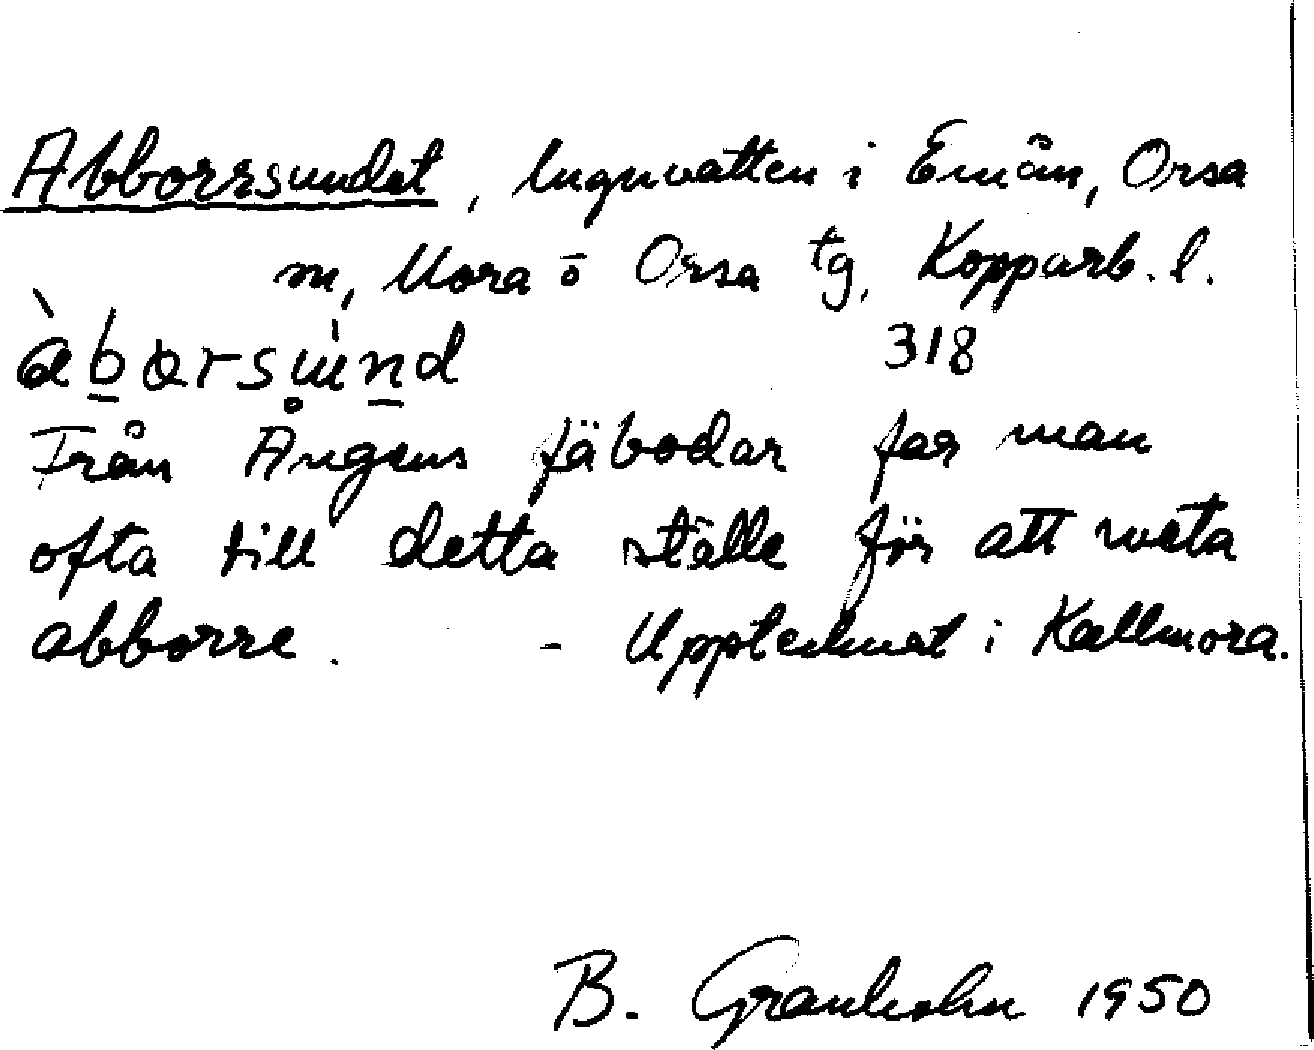 Abborrsundet, lugnvatten i Emån, Orsa
sn, Mora o Orsa tg, Kopparb. l.
318
Från Ångens fäbodar far man
ofta till detta ställe för att meta
abborre. - Upptecknat i Kallmora.
B. Granholm 1950